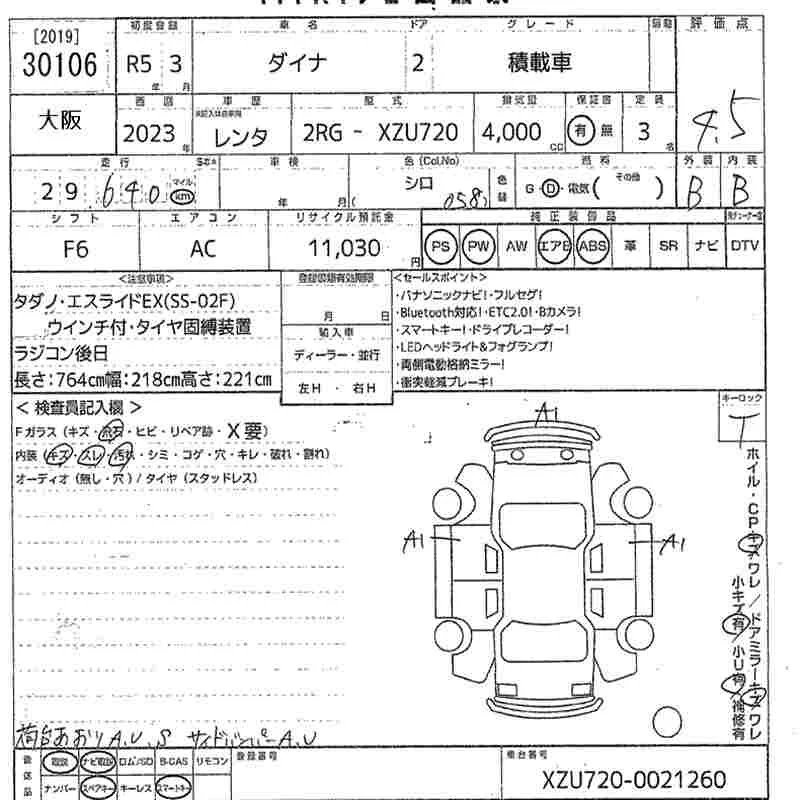 [2019]
30106
初度登録 車名 ドア グレード 評価点
R5 3 ダイナ 2 積載車
年 月
大阪
車歴 型式 排気量 保証書 定員
2023 年 レンタ 2RG - XZU720 4,000 CC 有 無 3 名
4.5
走行 車検 色(Col.No) 燃料 外装 内装
29 640 マイル km 年 月( シロ 058) 色替 G・D・電気( その他 ) B B
シフト エアコン リサイクル預託金 純正装備品
F6 AC 11,030 円 PS PW AW エアB ABS 革 SR ナビ DTV
<注意事項>
タダノ・エスライドEX(SS-02F)
ウインチ付・タイヤ固縛装置
ラジコン後日
長さ:764cm幅:218cm高さ:221cm
登録書類有効期限
月 日
輸入車
ディーラー・並行
左H ・ 右H
<セールスポイント>
・パナソニックナビ!・フルセグ!
・Bluetooth対応!・ETC2.0!・Bカメラ!
・スマートキー!・ドライブレコーダー!
・LEDヘッドライト&フォグランプ!
・両側電動格納ミラー!
・衝突軽減ブレーキ!
< 検査員記入欄 >
Fガラス(キズ・飛石・ヒビ・リペア跡・X要)
内装(キズ・スレ・汚れ・シミ・コゲ・穴・キレ・破れ・割れ)
オーディオ(無し・穴)/タイヤ(スタッドレス)
キーロック
T
A1
A1
A1
ホイル・CPキズワレ/ドアミラーキズワレ
小キズ有・小U有・補修有
荷台あおりA.U.S サイドバンパーA.U
後送品 取説 ナビ取説 ロム/SD B-CAS リモコン
ナンバー スペアキー キーレス スマートキー
登録番号
車台番号
XZU720-0021260